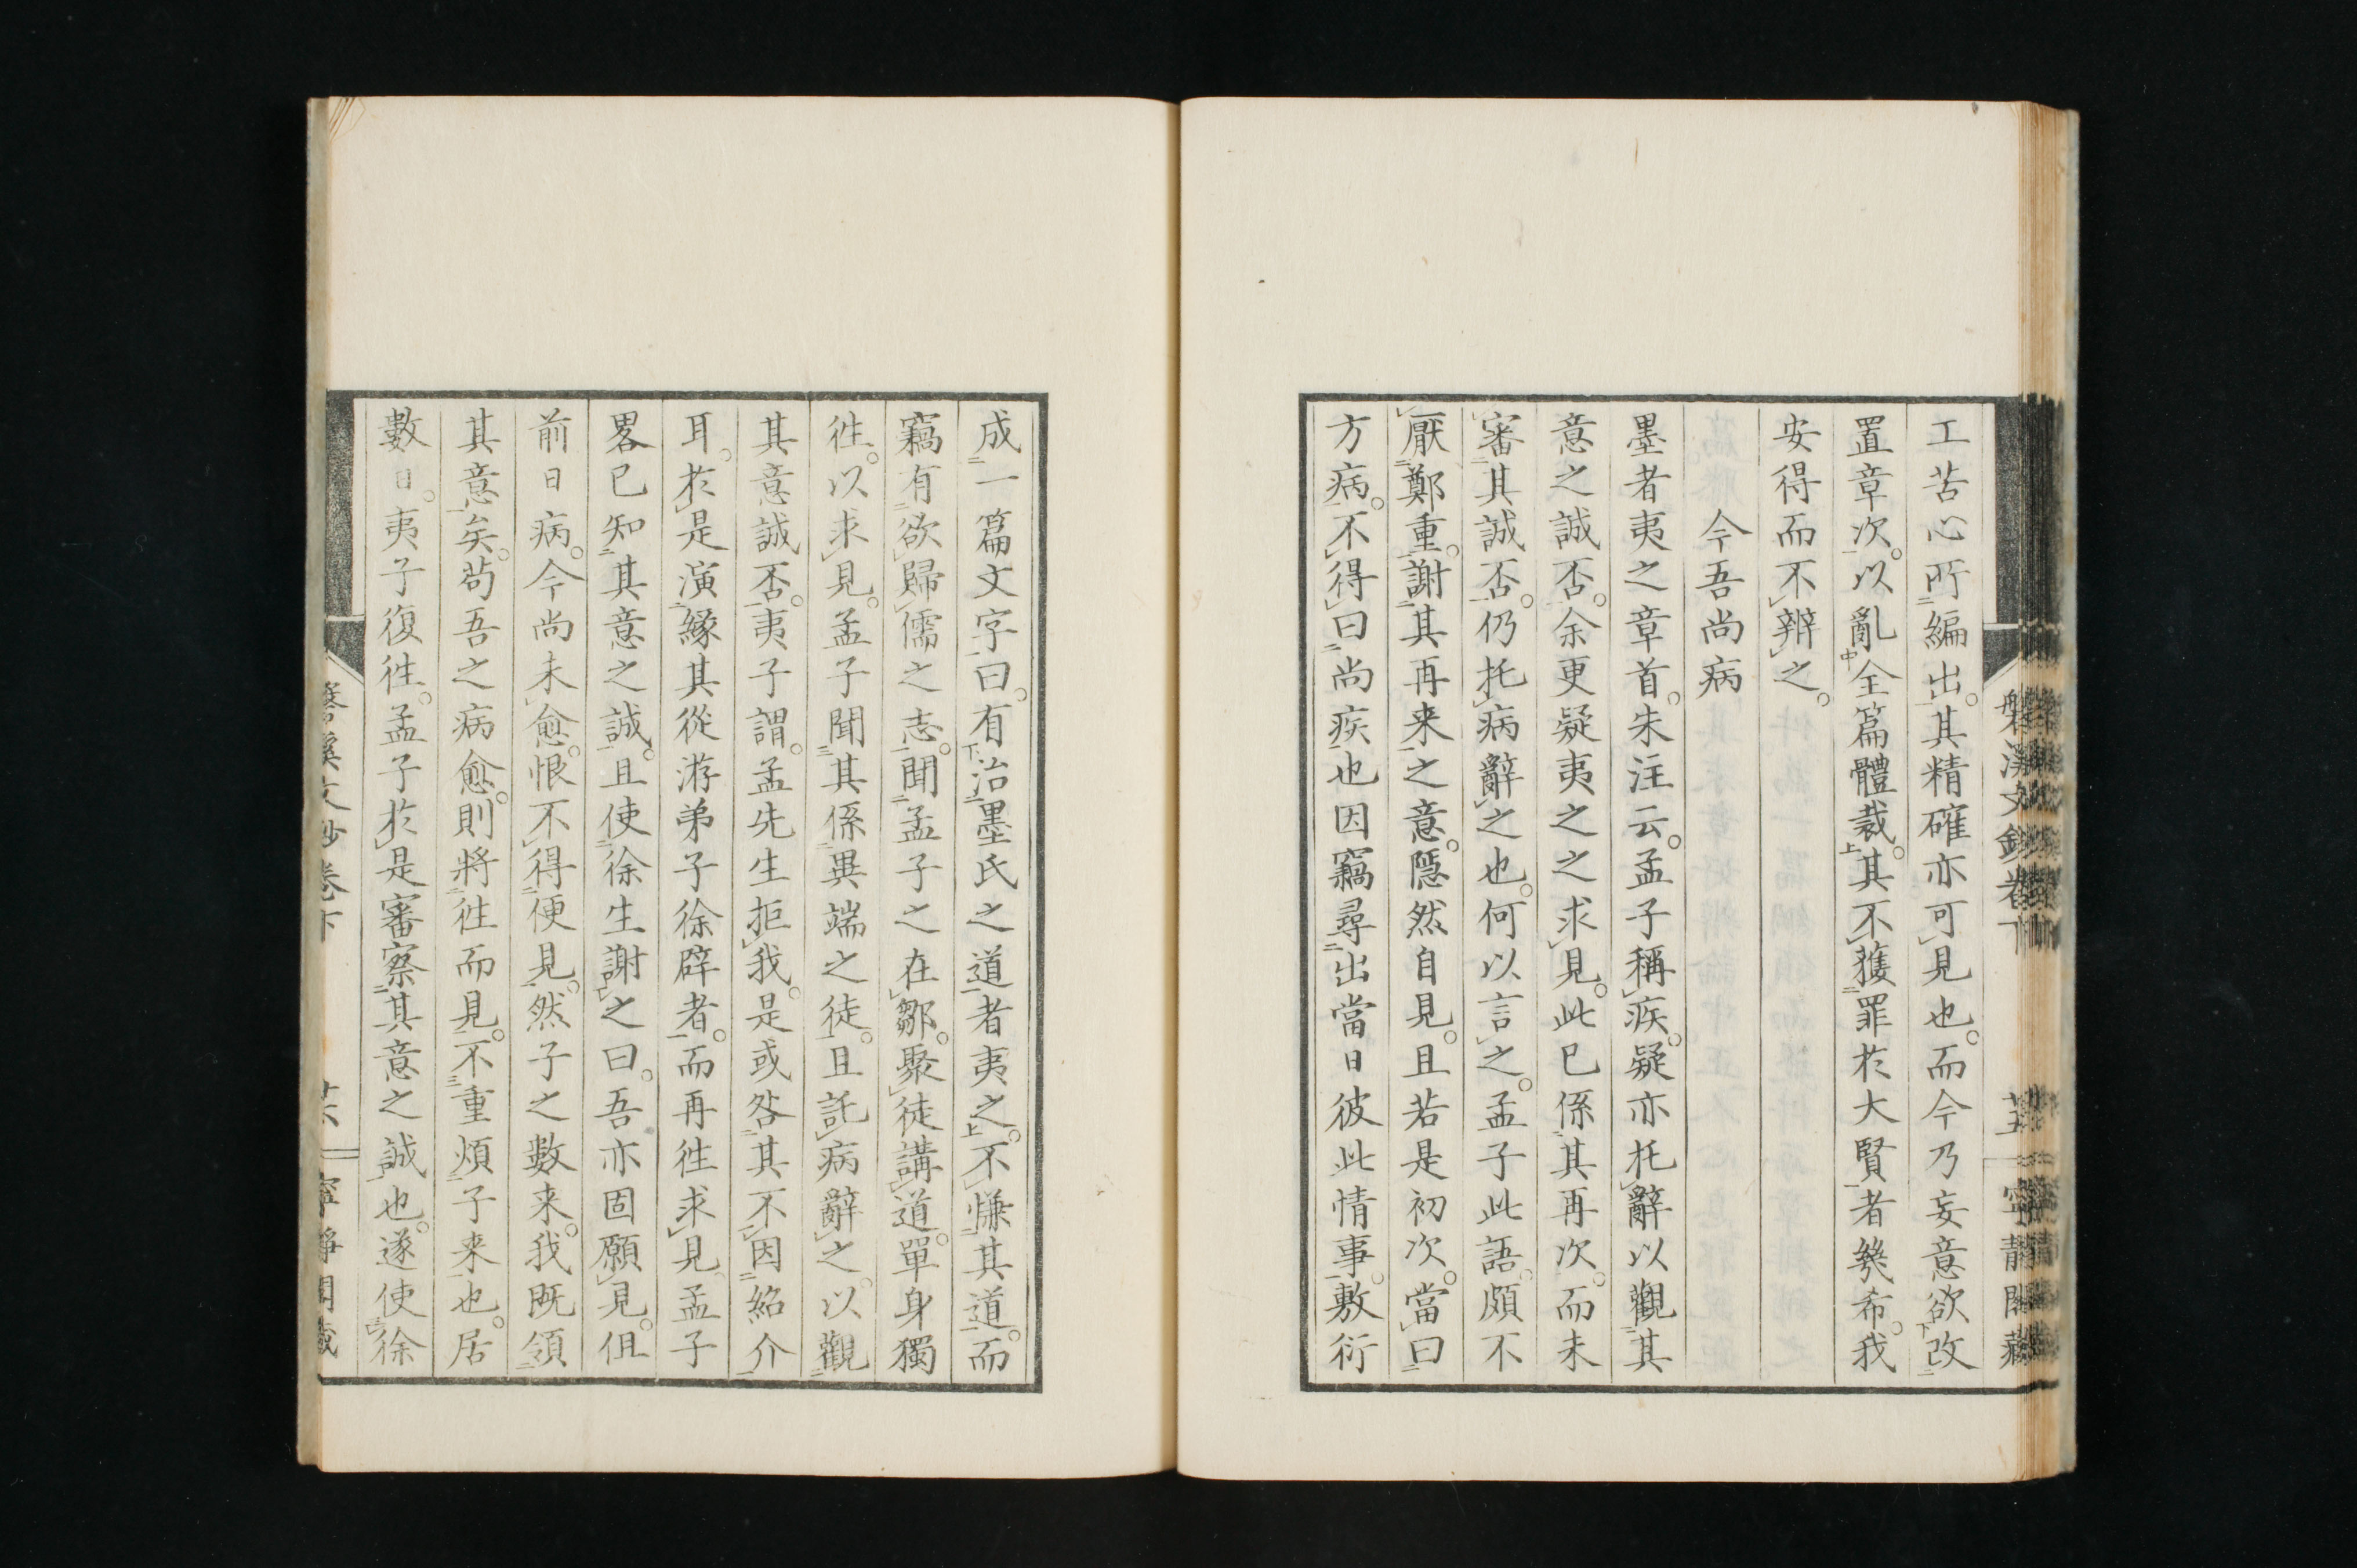 工苦心所編出其精確亦可見也而今乃妄意欲改
置章次以亂全篇體裁其不獲罪於大賢者幾希我
安得而不辨之
今吾尚病
墨者夷之章首朱注云孟子稱疾疑亦托辭以觀其
意之誠否余更疑夷之之求見此已係其再次而未
審其誠否仍托病辭之也何以言之孟子此語頗不
厭鄭重謝其再来之意隱然自見且若是初次當曰
方病不得曰尚疾也因竊尋出當日彼此情事敷衍
磐溪文鈔卷下
寧靜閣藏
成一篇文字曰有治墨氏之道者夷之不慊其道而
竊有欲歸儒之志聞孟子之在鄒聚徒講道單身獨
徃以求見孟子聞其係異端之徒且託病辭之以觀
其意誠否夷子謂孟先生拒我是或咎其不因紹介
耳於是演緣其從游弟子徐辟者而再徃求見孟子
畧已知其意之誠且使徐生謝之曰吾亦固願見但
前日病今尚未愈恨不得便見然子之數来我既領
其意矣苟吾之病愈則將徃而見不重煩子来也居
數日夷子復徃孟子於是審察其意之誠也遂使徐
磐溪文鈔卷下
寧靜閣藏